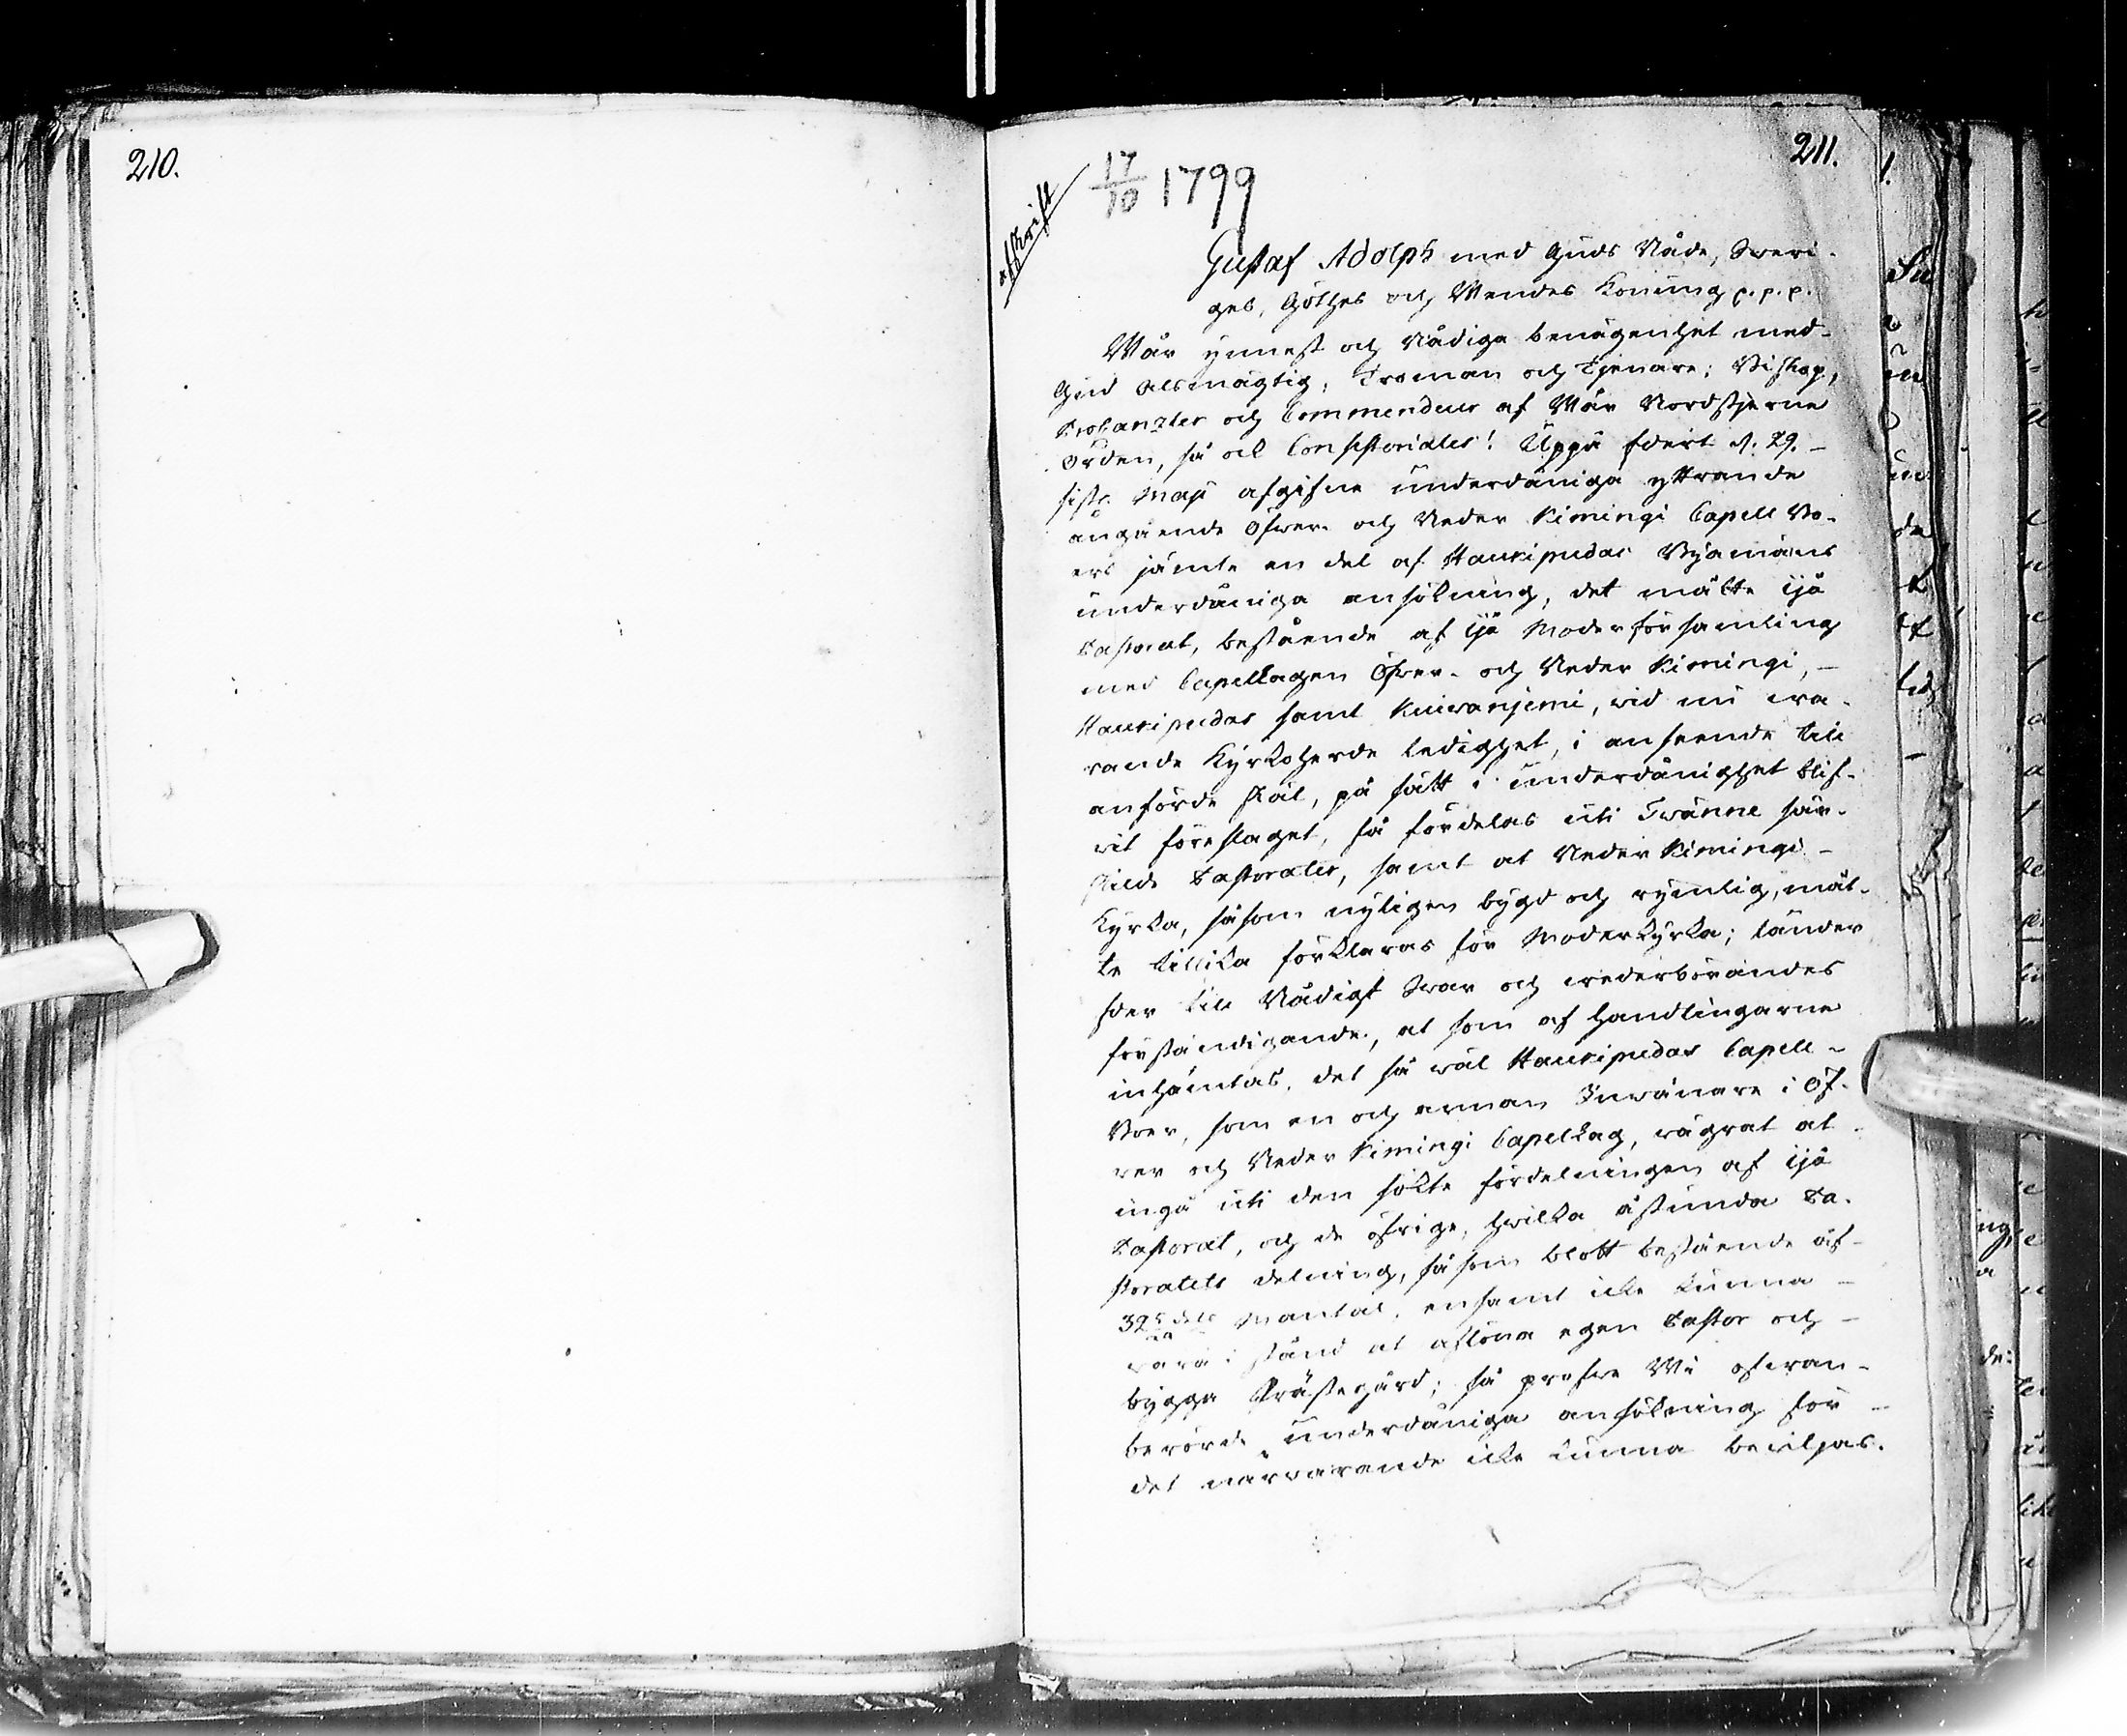 210.
211.
17/10 1799
afskrift
Gustaf Adolph med Guds Nåde, Sveri-
ges, Göthes och Wendes Konung p. p. p.
Wår ynnest och Nådiga benägenhet med
Gud alsmägtig, Troman och Tjenare; Bishop,
Procanzler och Commendeur af Wår Nordstjerne
Orden, så ock Consistoriales! Uppå Edert d. 29.
siste Maji afgifne underdåniga yttrande
angående Öfver- och Neder Kimingi Capell Bo-
ers jämte en del af Haukipudas Byamäns
underdåniga ansökning, det måtte Ijå
Pastorat, bestående af Ijå Moderförsamling
med Capellagen Öfver- och Neder Kimingi,
Haukipudas samt Kuivaniemi, wid nu wa-
rande Kyrkoherde ledighet, i anseende till
anförde skäl, på sätt i underdånighet blif-
vit föreslaget, få fördelas uti Twänne sär-
skilde Pastorater, samt at Neder Kimingi
Kyrka, såsom nyligen bygd och rymlig, måt-
te tillika förklaras för Moderkyrka; länder
Eder till Nådigt Svar och wederbörandes
förständigande, at som af Handlingarne
inhämtas, det så wäl Haukipudas Capell-
Boer, som en och annan Inwånare i Öf-
ver och Neder Kimingi Capellag, wägrat at
ingå uti den sökte fördelningen af Ijå
Pastorat, och de öfrige, hwilka åstunda Pa-
storatets delning, såsom blott bestående af
Mantal, ensamt icke kunna
vara i stånd at aflöna egen Pastor och
bygga Prästegård; så pröfve Wi ofwan-
berörde underdåniga ansökning för
det närwarande icke kunna beviljas.